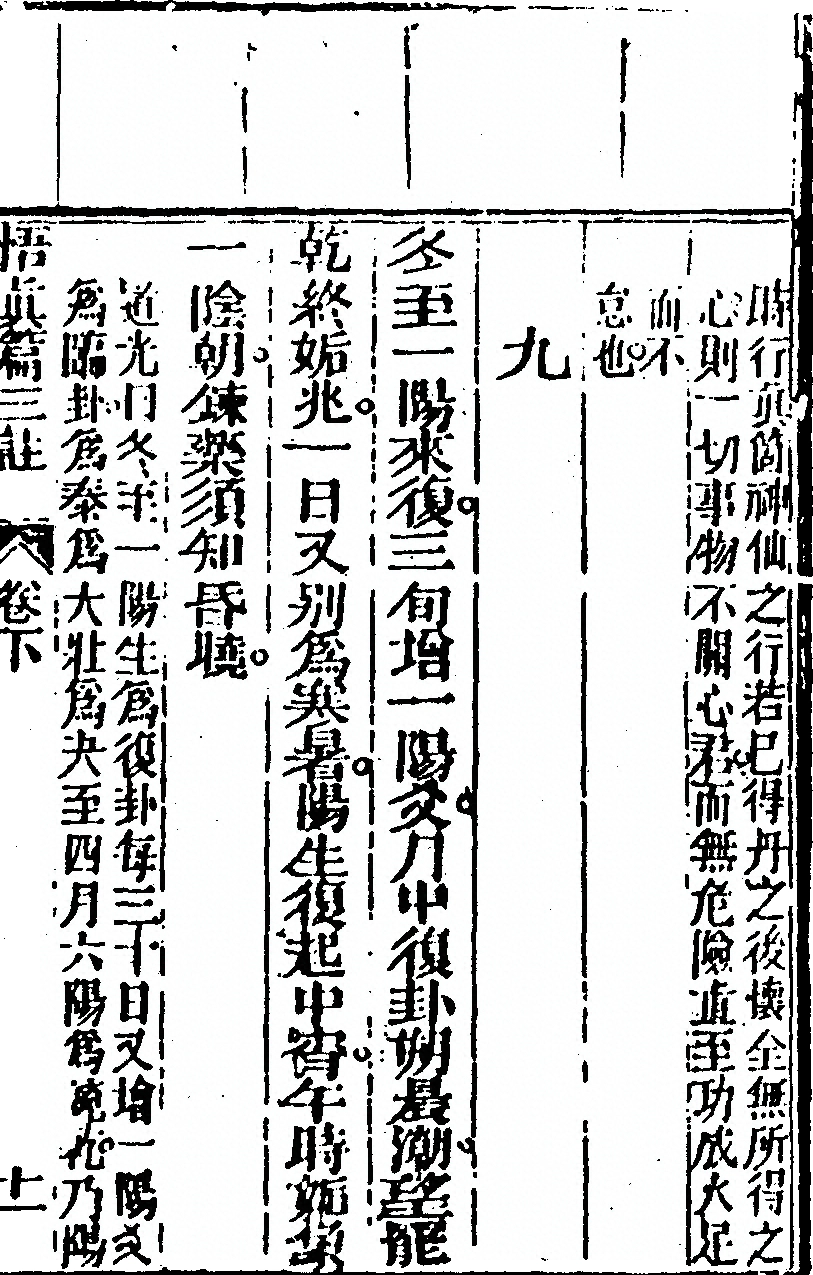 時行眞箇神仙之行若已得丹之後懷全無所得之
心則一切事物不關心君而無危險直至功成大足
而不
怠也
九
冬至一陽來復三旬增一陽爻月中復卦朔晨潮望罷
乾終姤兆一日又别爲寒暑陽生復起中宵午時姤象
一陰朝煉藥須知昏曉
道光曰冬至一陽生爲復卦每三十日又增一陽爻
爲臨卦爲泰爲大壯爲夬至四月六陽爲純乾乃陽
悟眞篇三註 卷下 十一